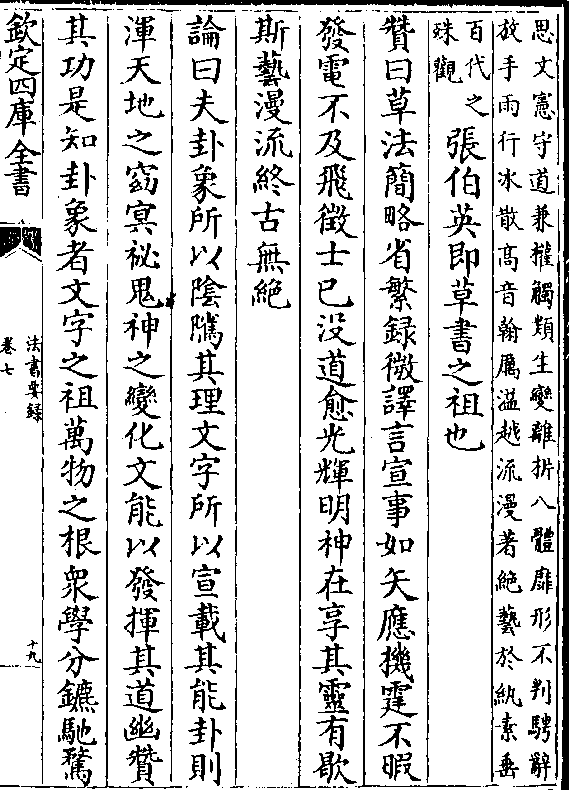 思文憲守道兼權觸類生變離析八體靡形不判騁辭
放手雨行冰散高音翰厲溢越流漫著絶藝於紈素垂
百代之
殊觀
張伯英即草書之祖也
賛曰草法簡略省繁録微譯言宣事如矢應機霆不暇
發電不及飛徴士已没道愈光輝明神在享其靈有歇
斯藝漫流終古無絶
論曰夫卦象所以陰隲其理文字所以宣載其能卦則
渾天地之窈冥祕鬼神之變化文能以發揮其道幽賛
其功是知卦象者文字之祖萬物之根衆學分鑣馳騖
欽定四庫全書
法書要録
卷七
十九